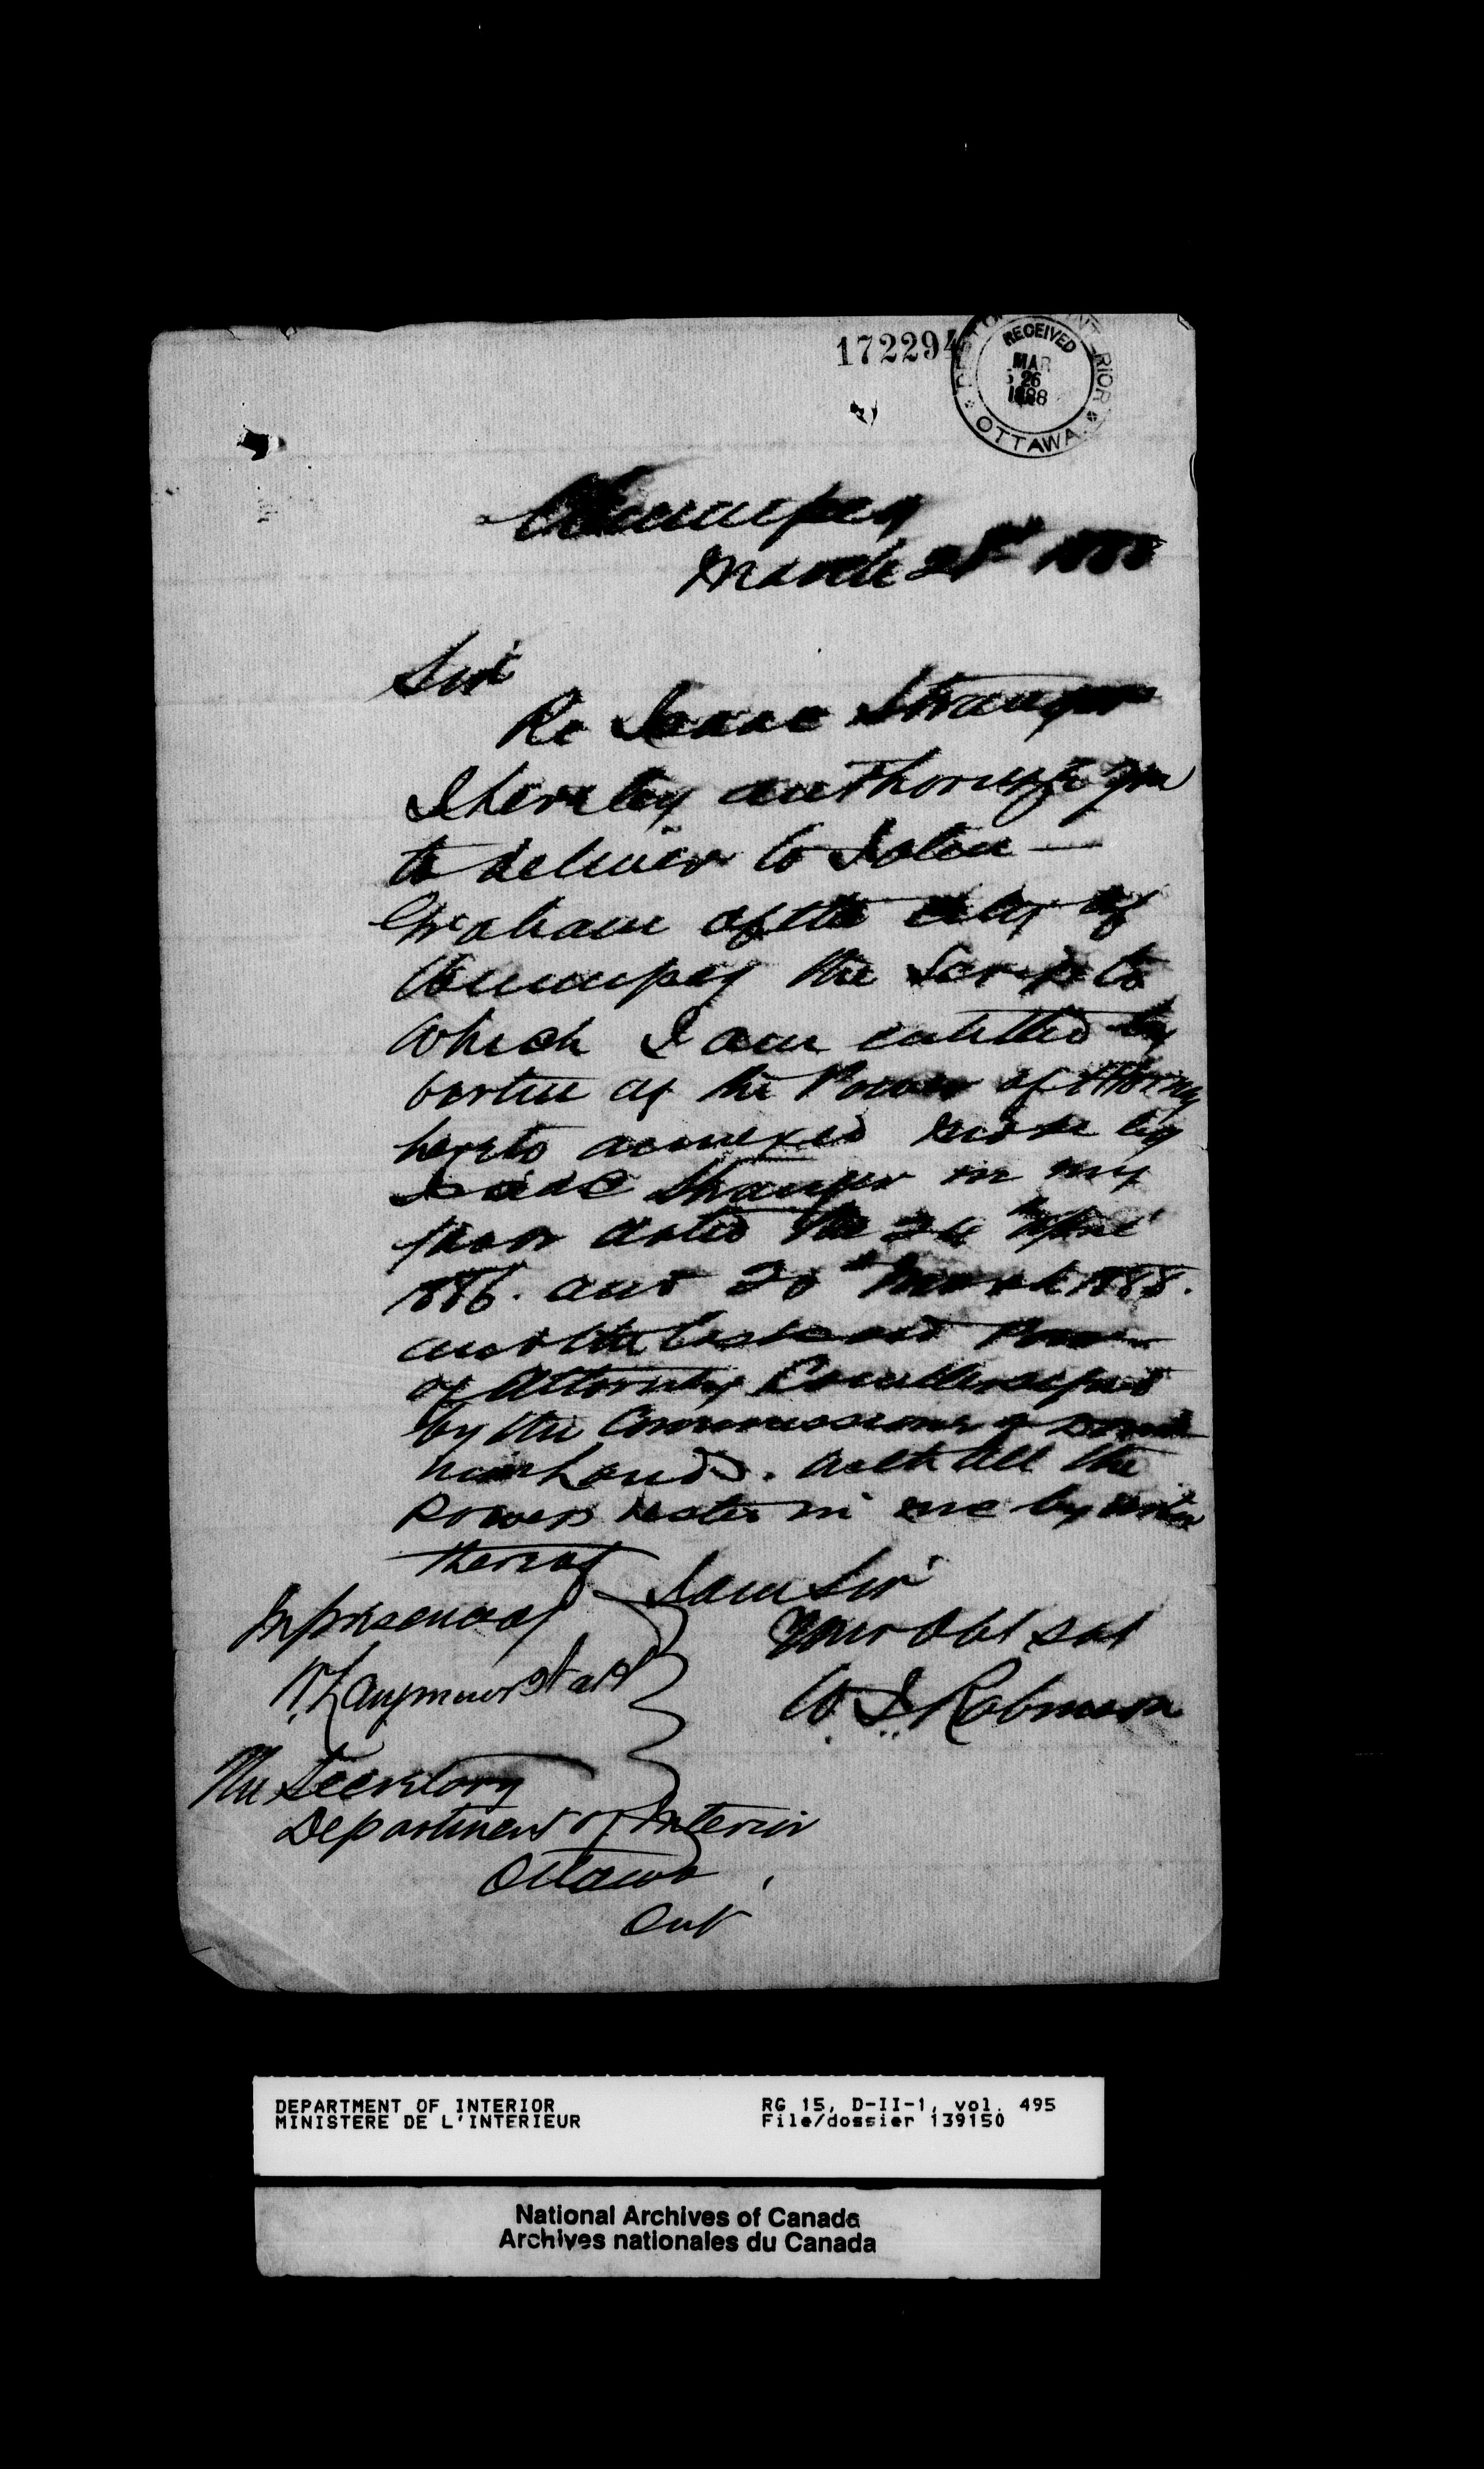 172294
DEPT OF INTERIOR
RECEIVED
MAR
26
1888
OTTAWA
Winnipeg
March 21st 1888
Sir
Re Isaac Stranger
I hereby authorize you
to deliver to John —
Graham of the City of
Winnipeg the Scrip to
which I am entitled by
virtue of the Power of Attorney
hereto annexed made by
Isaac Stranger in my
favor dated the April
1886. and 20th March 1888.
and the Power
of Attorney Countersigned
by the Commissioner of Domi
nion Lands. with all the
Powers vested in me by virtue
thereof
I am Sir
In presence of
Your Obt Svt
W. Robinson
The Secretary
Department of Interior
Ottawa,
Ont
DEPARTMENT OF INTERIOR
MINISTERE DE L'INTERIEUR
RG 15, D-II-1, vol. 495
File/dossier 139150
National Archives of Canada
Archives nationales du Canada